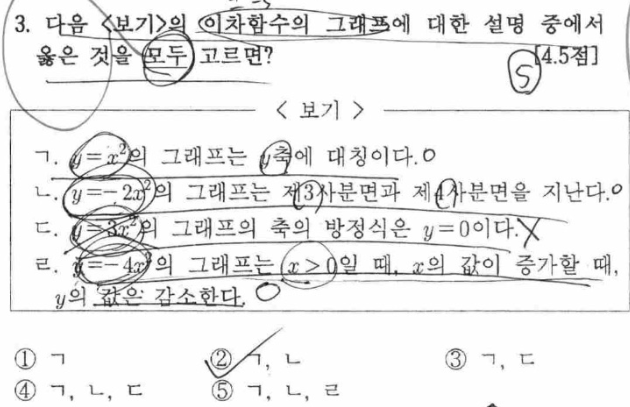 3. 다음 <보기>의 이차함수의 그래프에 대한 설명 중에서
옳은 것을 모두 고르면? [4.5점]
S
< 보기 >
ㄱ. y=x²의 그래프는 y축에 대칭이다. O
ㄴ. y=-2x²의 그래프는 제3사분면과 제4사분면을 지난다. O
ㄷ. y=3x²의 그래프의 축의 방정식은 y=0이다. X
ㄹ. y=-4x²의 그래프는 x>0일 때, x의 값이 증가할 때,
y의 값은 감소한다. O
① ㄱ ② ㄱ, ㄴ ③ ㄱ, ㄷ
④ ㄱ, ㄴ, ㄷ ⑤ ㄱ, ㄴ, ㄹ